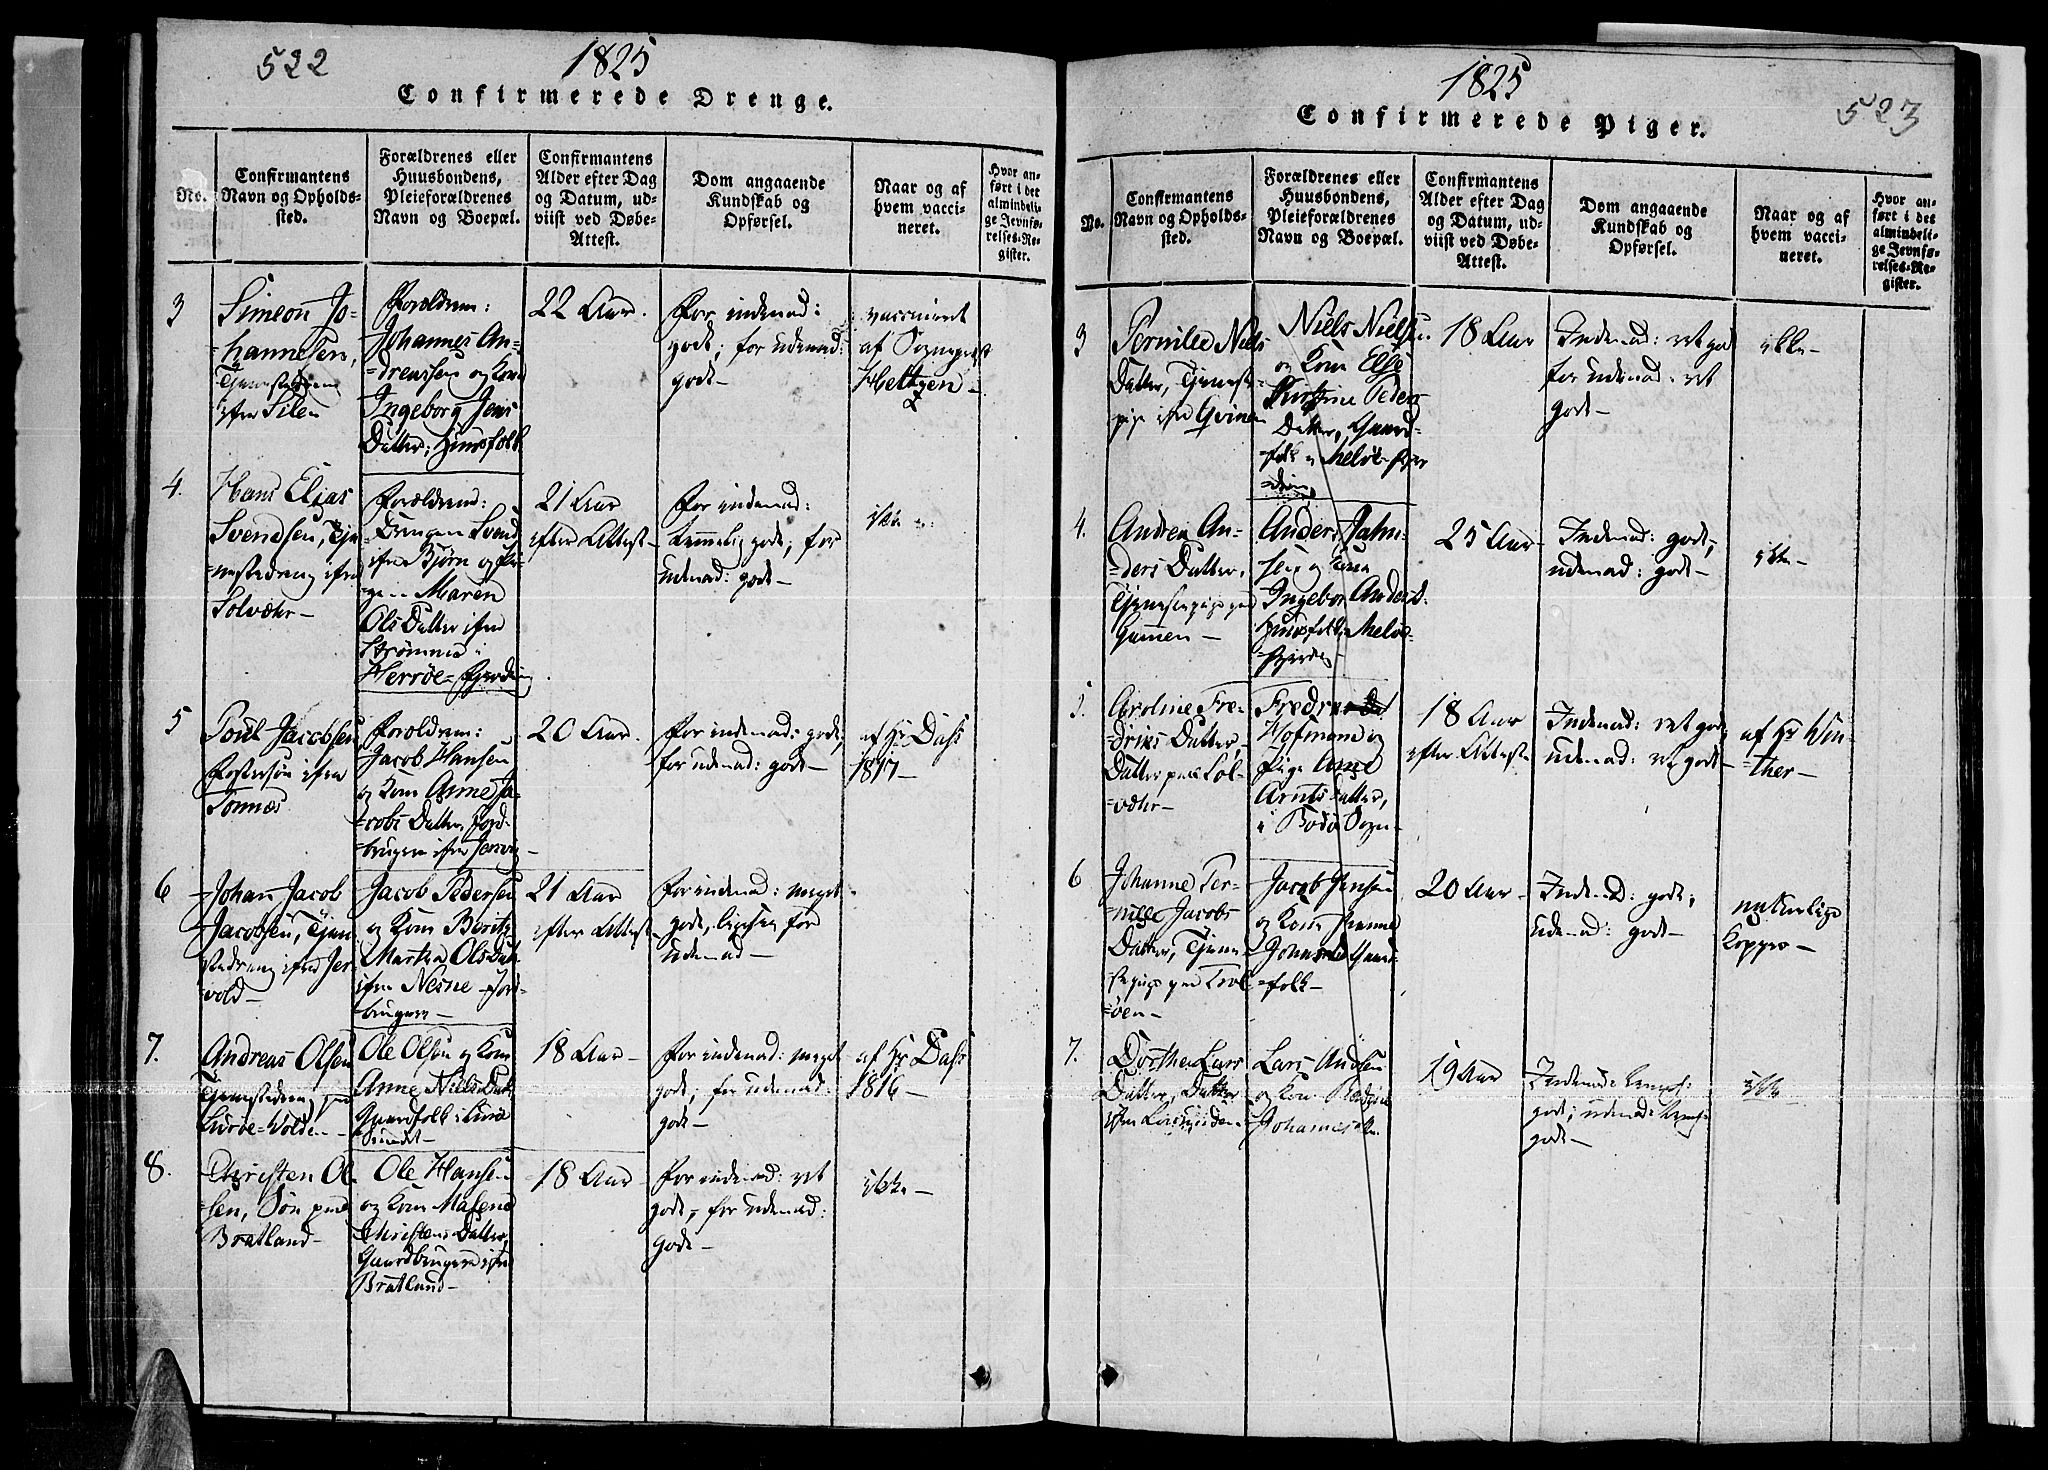 522
1825
Confirmerede Drenge.
No.
Confirmantens
Navn og Opholds-
sted.
Forældrenes eller
Huusbondens,
Pleieforældrenes
Navn og Boepæl.
Confirmantens
Alder efter Dag
og Datum, ud-
viist ved Døbe-
Attest.
Dom angaaende
Kundskab og
Opførsel.
Naar og af
hvem vacci-
neret.
Hvor an-
ført i det
almindeli-
ge Jevnfø-
relses-Re-
gister.
3
Simeon Jo-
hannesen,
Tjenestedreng
Silen
Forældrene:
Johannes An-
dreassen og Kone
Ingeborg Jens
Datter, Huusfolk
22 Aar.
For indenad:
godt; for udenad:
godt
vaccineret
af Sognepræst
Heltzen
4.
Hans Elias
Svendsen, Tje-
nestedreng ifra
Solvær
Forældrene:
Drengen Svend
ifra Bjørn og Pi-
gen Maren
Ols Datter ifra
Strømmen i
Herrøe-Fjerding
21 Aar
efter Attest
For indenad:
temmelig godt; for
udenad: godt
ikke
5
Poul Jacobsen
Fostersøn ifra
Tonnæs
Forældrene:
Jacob Hansen
og Kone Anne Ja-
cobs Datter, Jord-
brugere ifra
20 Aar.
For indenad: godt;
for udenad: godt
af Hr Dass
1817
6
Johan Jacob
Jacobsen, Tjene-
stedreng ifra Jer-
vold
Jacob Pedersen
og Kone Berith
Martha Ols Dat
ifra Nesne Jord-
brugere
21 Aar
efter Attest
For indenad: meget
godt, ligesaa for
udenad
7.
Andreas Olsen
Tjenestedreng paa
Lurøe-Volden
Ole Olsen og Kone
Anne Niels Dat
Gaardfolk i
Sundet
18 Aar
For indenad: meget
godt; for udenad:
godt
af Hr Dass
1816
8.
Christen Ol-
sen, Søn paa
Bratland
Ole Hansen
og Kone Malene
Christens Datter,
Gaardbrugere ifra
Bratland
18 Aar
For indenad: ret
godt, for udenad:
godt
ikke
1825
523
Confirmerede Piger.
No.
Confirmantens
Navn og Opholds-
sted.
Forældrenes eller
Huusbondens,
Pleieforældrenes
Navn og Boepæl.
Confirmantens
Alder efter Dag
og Datum, ud-
viist ved Døbe-
Attest.
Dom angaaende
Kundskab og
Opførsel.
Naar og af
hvem vacci-
neret.
Hvor an-
ført i det
almindeli-
ge Jevnfø-
relses-Re-
gister.
3
Pernille Niels
Datter, Tjeneste-
pige ifra Qvinen
Niels Nielsen
og Kone Else
Kirstine Peders
Datter, Gaard-
folk i Meløe-Fjer
ding
18 Aar
Indenad: ret godt
for udenad: ret
godt
ikke
4.
Andrea An-
ders Datter,
Tjenestepige paa
Gunnen
Anders Jahn-
sen og Kone
Ingebor Anders D.
Huusfolk i Meløe-
Fjerding
25 Aar
Indenad: godt,
udenad: godt
ikke
5.
Caroline Fre-
driks Datter,
Datter paa Sol-
vær
Fredrik
Hofmand og
Pige Anne
Arnts Datter,
i Bodø Sogn
18 Aar
efter Attest
Indenad: ret godt;
udenad: ret godt
af Hr Win-
ther
6
Johanne Per-
nille Jacobs
Datter, Tjene-
stepige paa
øen
Jacob Jensen
og Kone Hanna
Gaard-
folk
20 Aar
Indenad: godt;
udenad: godt
naturlige
Kopper
7.
Dorthea Lars
Datter, Datter
ifra
Lars Andsen
og Kone
Johannes
19 Aar
Indenad:
godt; udenad:
godt
ikke